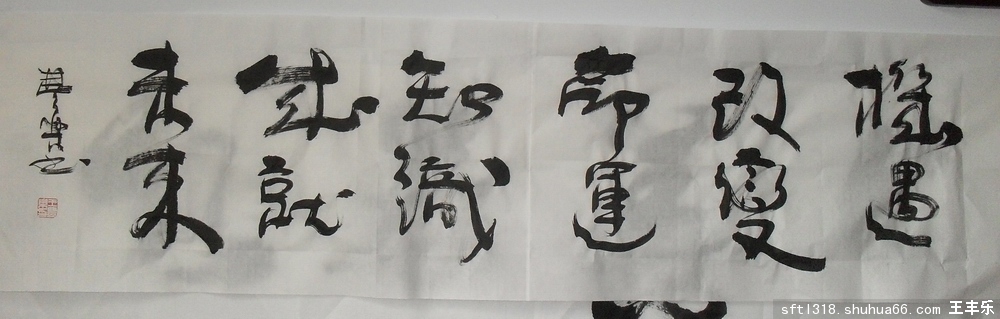 機遇
改變
命運
知識
成就
未来
豊樂书
sftl318.shuhua66.com 王丰乐